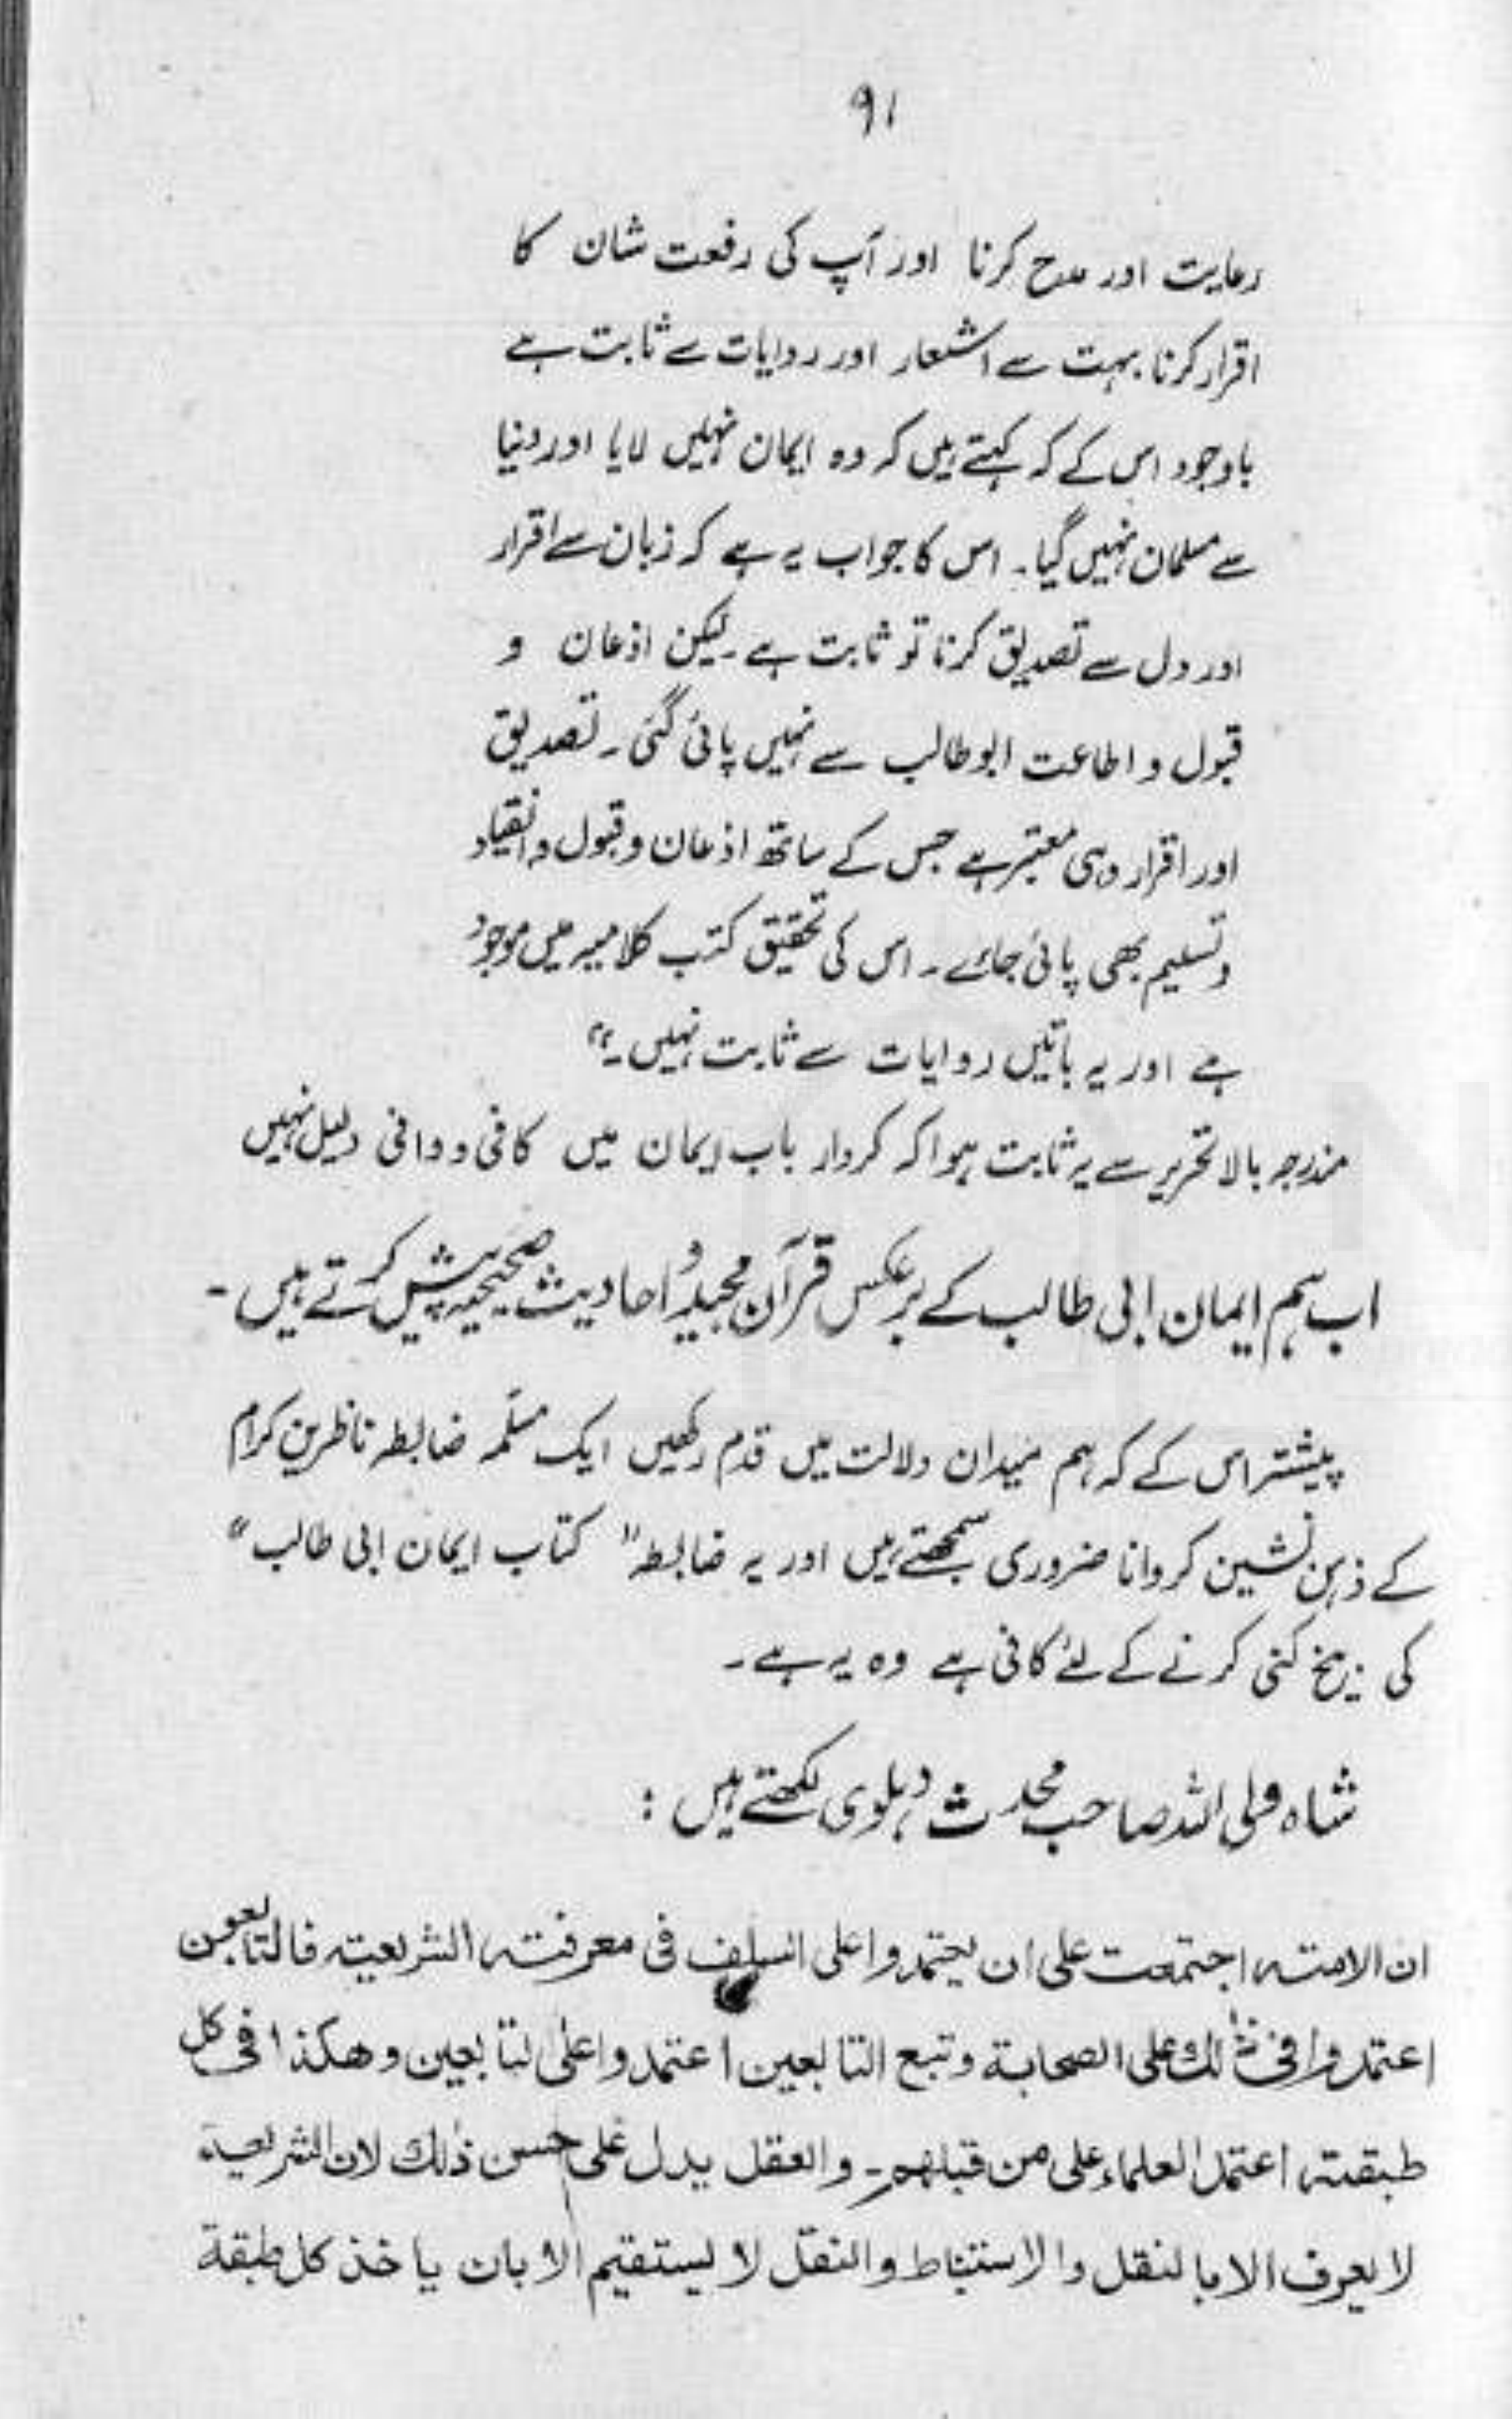 ۹۱
رعایت اور مدح کرنا اور آپ کی رفعت شان کا
اقرار کرنا بہت سے اشعار اور روایات سے ثابت ہے
باوجود اس کے کہ کہتے ہیں کہ وہ ایمان نہیں لایا اور دنیا
سے مسلمان نہیں گیا۔ اس کا جواب یہ ہے کہ زبان سے اقرار
اور دل سے تصدیق کرنا تو ثابت ہے۔ لیکن اذعان و
قبول و اطاعت ابو طالب سے نہیں پائی گئی۔ تصدیق
اور اقرار وہی معتبر ہے جس کے ساتھ اذعان و قبول و انقیاد
و تسلیم بھی پائی جائے۔ اس کی تحقیق کتب کلامیہ میں موجود
ہے اور یہ باتیں روایات سے ثابت نہیں۔"
مندرجہ بالا تحریر سے یہ ثابت ہوا کہ کردار باب ایمان میں کافی و وافی دلیل نہیں
اب ہم ایمان ابی طالب کے برعکس قرآن مجید و احادیث صحیحیہ پیش کرتے ہیں۔
پیشتر اس کے کہ ہم میدان دلالت میں قدم رکھیں ایک مسلّمہ ضابطہ ناظرین کرام
کے ذہن نشین کروانا ضروری سمجھتے ہیں اور یہ ضابطہ "کتاب ایمان ابی طالب"
کی بیخ کنی کرنے کے لئے کافی ہے وہ یہ ہے۔
شاہ ولی اللہ صاحب محدث دہلوی لکھتے ہیں :
ان الامتہ اجتمعت علی ان یعتمدوا علی السلف فی معرفتہ الشریعتہ فالتابعون
اعتمدوا فی ذٰلک علی الصحابة وتبع التابعین اعتمدوا علی لتابعین وھکذا فی کل
طبقتہ اعتمد العلماء علی من قبلھم۔ والعقل یدل علی حسن ذٰلک لان الشریعة
لا یعرف الا بالنقل والاستنباط والنقل لا یستقیم الا بان یاخذ کل طبقة